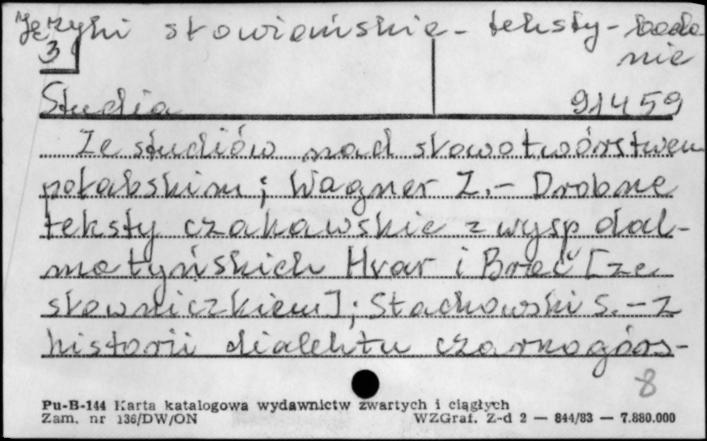 Języki słowiańskie - teksty - bada
nie
3
Studia 91459
Ze studiów nad słowotwórstwem
połabskim; Wagner Z. - Drobne
teksty czakawskie z wysp dal-
matyńskich Hvar i Brač [ze
słowniczkiem]; Stachowski S. - Z
historii dialektu czarnogórs-
8
Pu-B-144 Karta katalogowa wydawnictw zwartych i ciągłych
Zam. nr 136/DW/ON WZGraf. Z-d 2 — 844/83 — 7.880.000